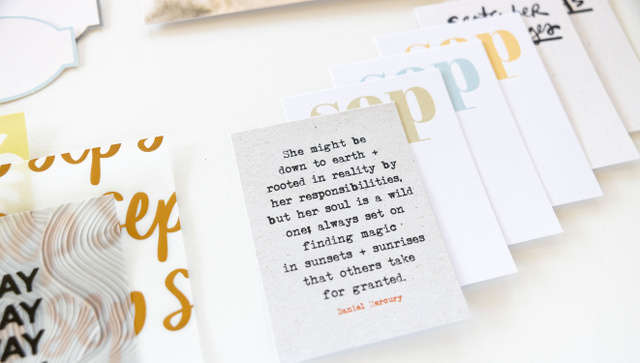 September
sep
sep
sep
She might be
down to earth +
rooted in reality by
her responsibilities,
but her soul is a wild
one; always set on
finding magic
in sunsets + sunrises
that others take
for granted.
Daniel Mercury
sep's
sep
AY
AY
AY